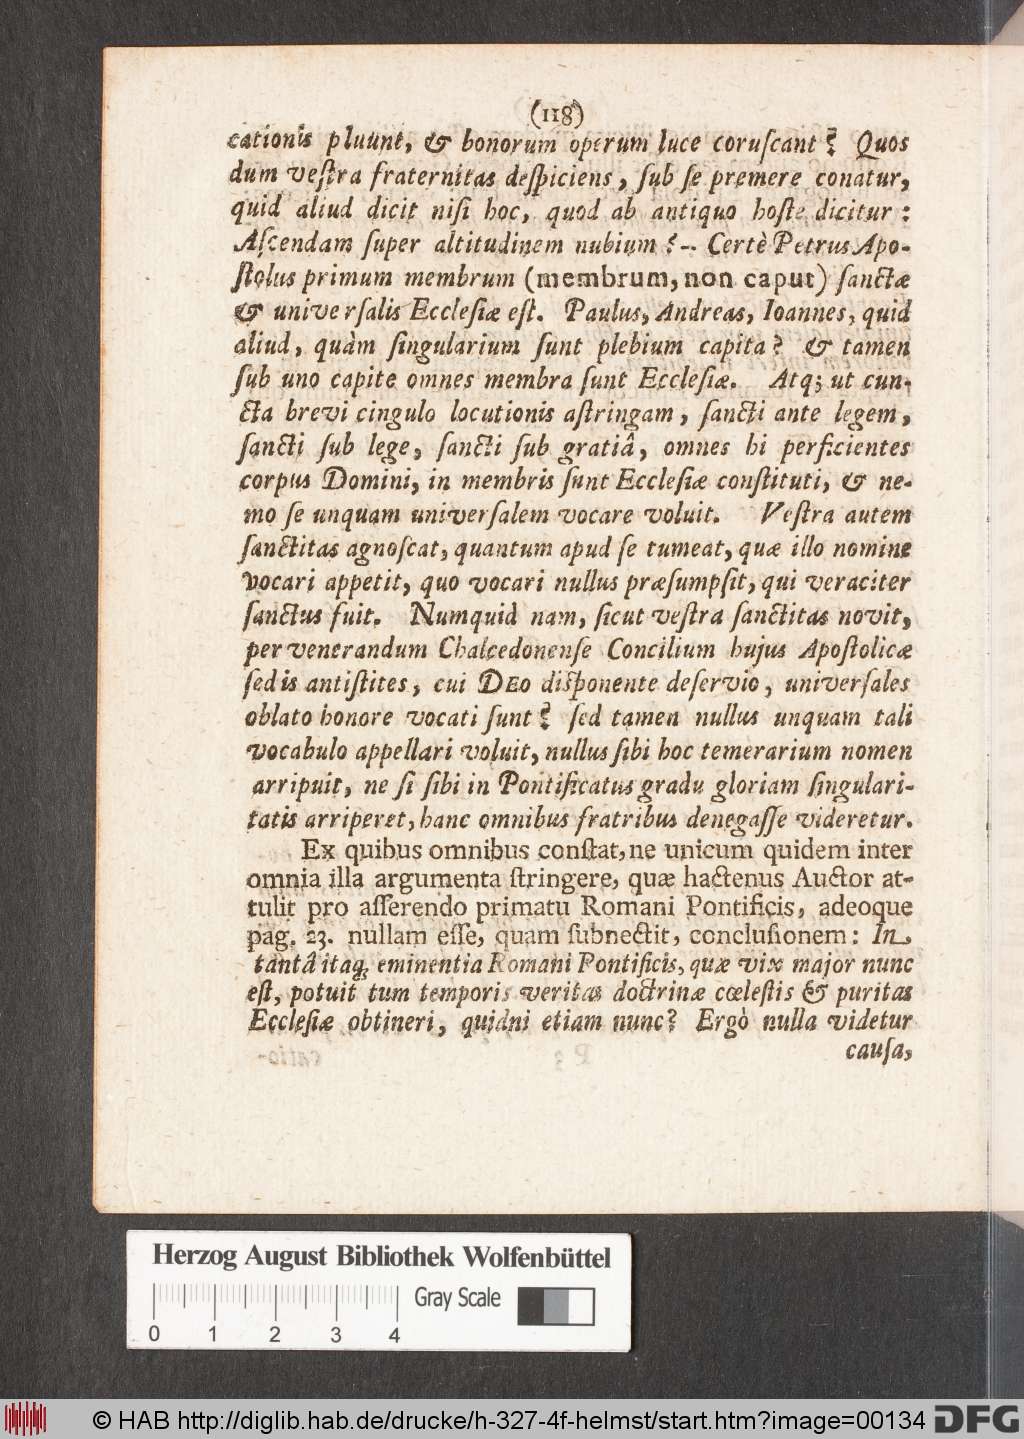 (118)
cationis pluunt, & bonorum operum luce coruſcant? Quos
dum veſtra fraternitas deſpiciens, ſub ſe premere conatur,
quid aliud dicit niſi hoc, quod ab antiquo hoſte dicitur:
Aſcendam ſuper altitudinem nubium? -- Certè Petrus Apo-
ſtolus primum membrum (membrum, non caput) ſanctæ
& univerſalis Eccleſiæ eſt. Paulus, Andreas, Ioannes, quid
aliud, quàm ſingularium ſunt plebium capita? & tamen
ſub uno capite omnes membra ſunt Eccleſiæ. Atq; ut cun-
cta brevi cingulo locutionis aſtringam, ſancti ante legem,
ſancti ſub lege, ſancti ſub gratiâ, omnes hi perficientes
corpus Domini, in membris ſunt Eccleſiæ conſtituti, & ne-
mo ſe unquam univerſalem vocare voluit. Veſtra autem
ſanctitas agnoſcat, quantum apud ſe tumeat, quæ illo nomine
vocari appetit, quo vocari nullus præſumpſit, qui veraciter
ſanctus fuit. Numquid nam, ſicut veſtra ſanctitas novit,
per venerandum Chalcedonenſe Concilium hujus Apoſtolicæ
ſedis antiſtites, cui DEO diſponente deſervio, univerſales
oblato honore vocati ſunt? ſed tamen nullus unquam tali
vocabulo appellari voluit, nullus ſibi hoc temerarium nomen
arripuit, ne ſi ſibi in Pontificatus gradu gloriam ſingulari-
tatis arriperet, hanc omnibus fratribus denegaſſe videretur.
Ex quibus omnibus conſtat, ne unicum quidem inter
omnia illa argumenta ſtringere, quæ hactenus Auctor at-
tulit pro aſſerendo primatu Romani Pontificis, adeoque
pag. 23. nullam eſſe, quam ſubnectit, concluſionem: In
tantâ itaq; eminentia Romani Pontificis, quæ vix major nunc
eſt, potuit tum temporis veritas doctrinæ cœleſtis & puritas
Eccleſiæ obtineri, quidni etiam nunc? Ergò nulla videtur
cauſa,
Herzog August Bibliothek Wolfenbüttel
0 1 2 3 4 Gray Scale
© HAB http://diglib.hab.de/drucke/h-327-4f-helmst/start.htm?image=00134 DFG